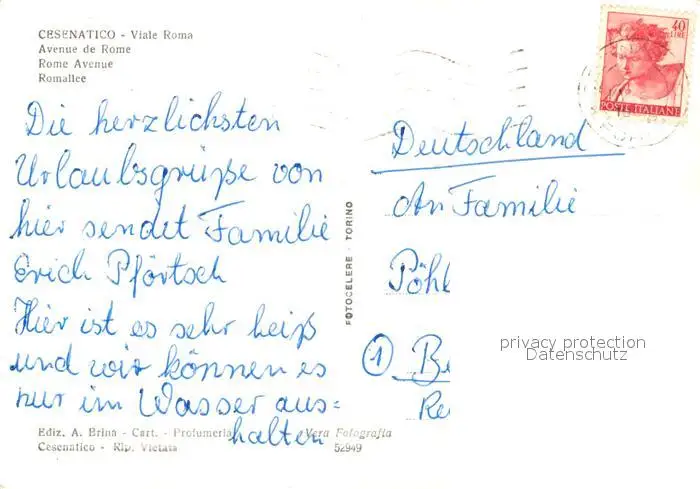 CESENATICO - Viale Roma
Avenue de Rome
Rome Avenue
Romallee
Die herzlichsten
Urlaubsgrüße von
hier sendet Familie
Erich Pförtsch
Hier ist es sehr heiß
und wir können es
nur im Wasser aus=
halten
Ediz. A. Brina - Cart. - Profumeria
Vera Fotografia
Cesenatico - Rip. Vietata
52949
FOTOCELERE - TORINO
40
LIRE
POSTE ITALIANE
Deutschland
An Familie
Pöhl
1 Be
Re
privacy protection
Datenschutz